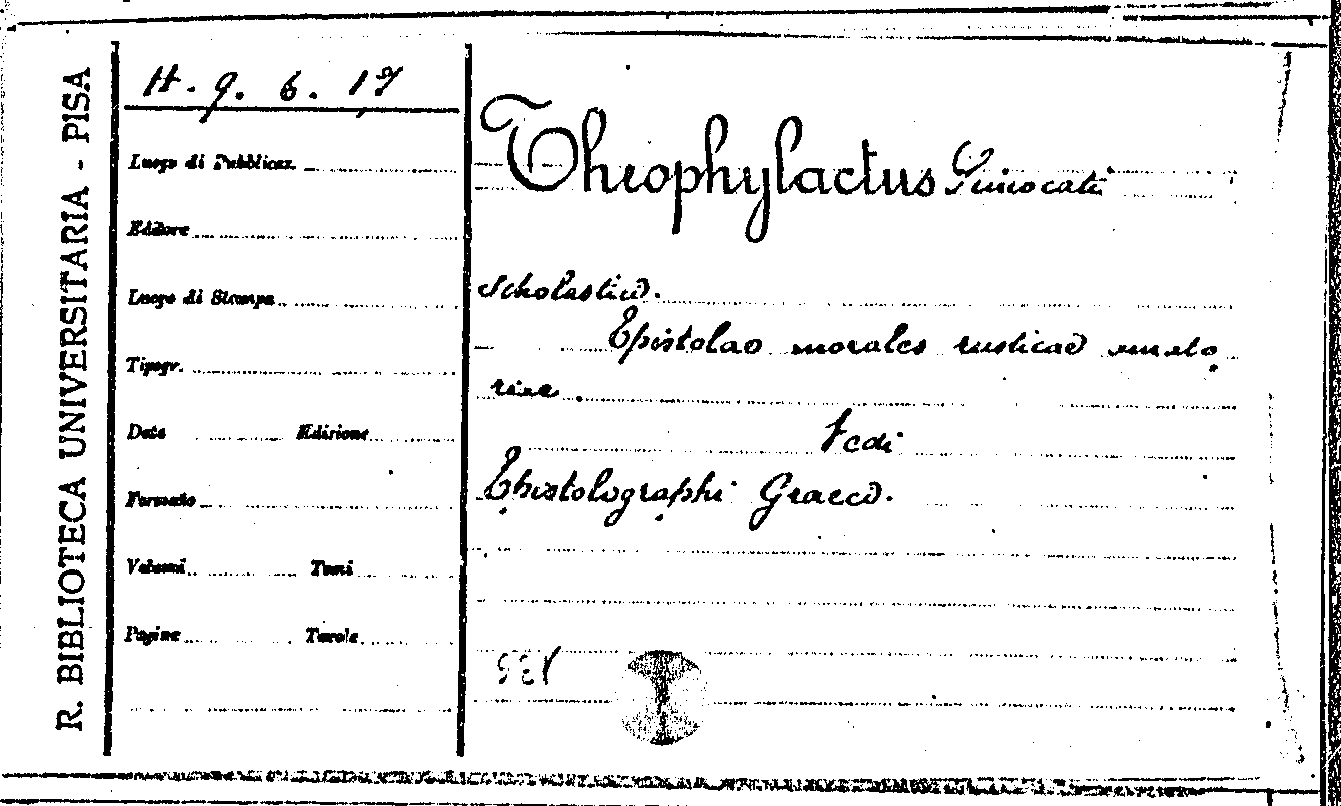 R. BIBLIOTECA UNIVERSITARIA - PISA
H. 9. 6. 17
Luogo di Pubblicaz.
Editore
Luogo di Stampa
Tipogr.
Data Edizione
Formato
Volumi Tomi
Pagine Tavole
Theophylactus Simocati
scholastici.
Epistolae morales rusticae amato
riae.
Vedi
Epistolographi Graeci.